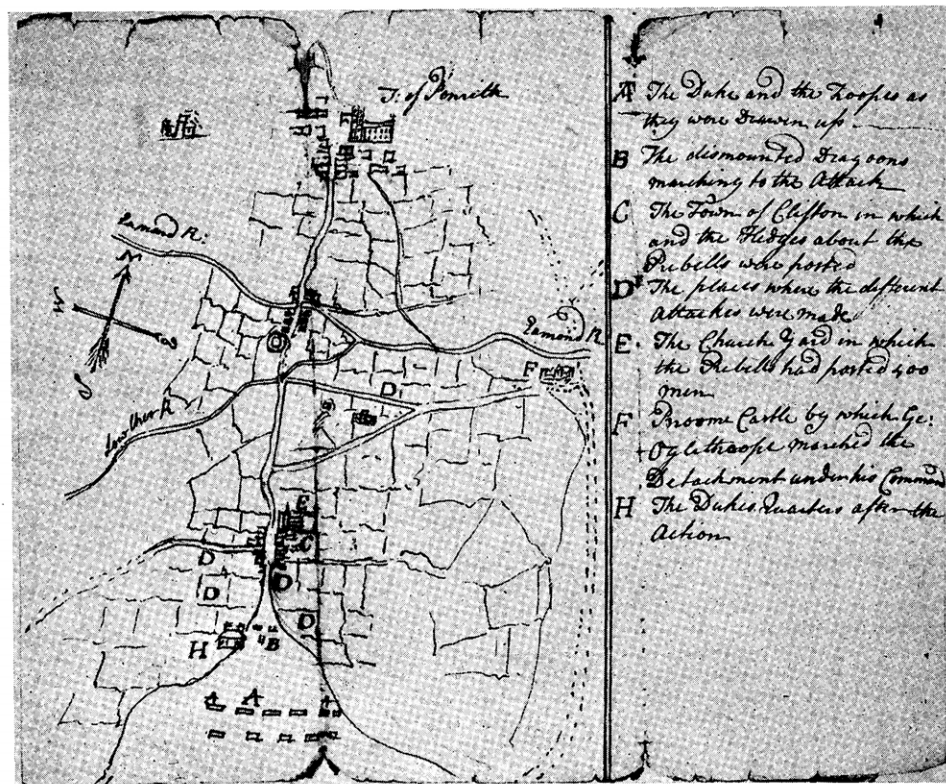 T: of Penrith
Eamond R:
N
W
S
E
Eamond R
Lowther R
F
D
E
C
D
D
D
D
H
B
A
A
A
A The Duke and the Troopes as
they were Drawn up
B The dismounted Dragoons
marching to the Attack
C The Town of Clifton in which
and the Hedges about the
Rebells were posted
D The places where the different
Attackes were made
E The Church Yard in which
the Rebells had posted 400
men
F Broome Castle by which Ge:
Oglethorpe marched the
Detachment under his Command
H The Dukes Quarters after the
Action